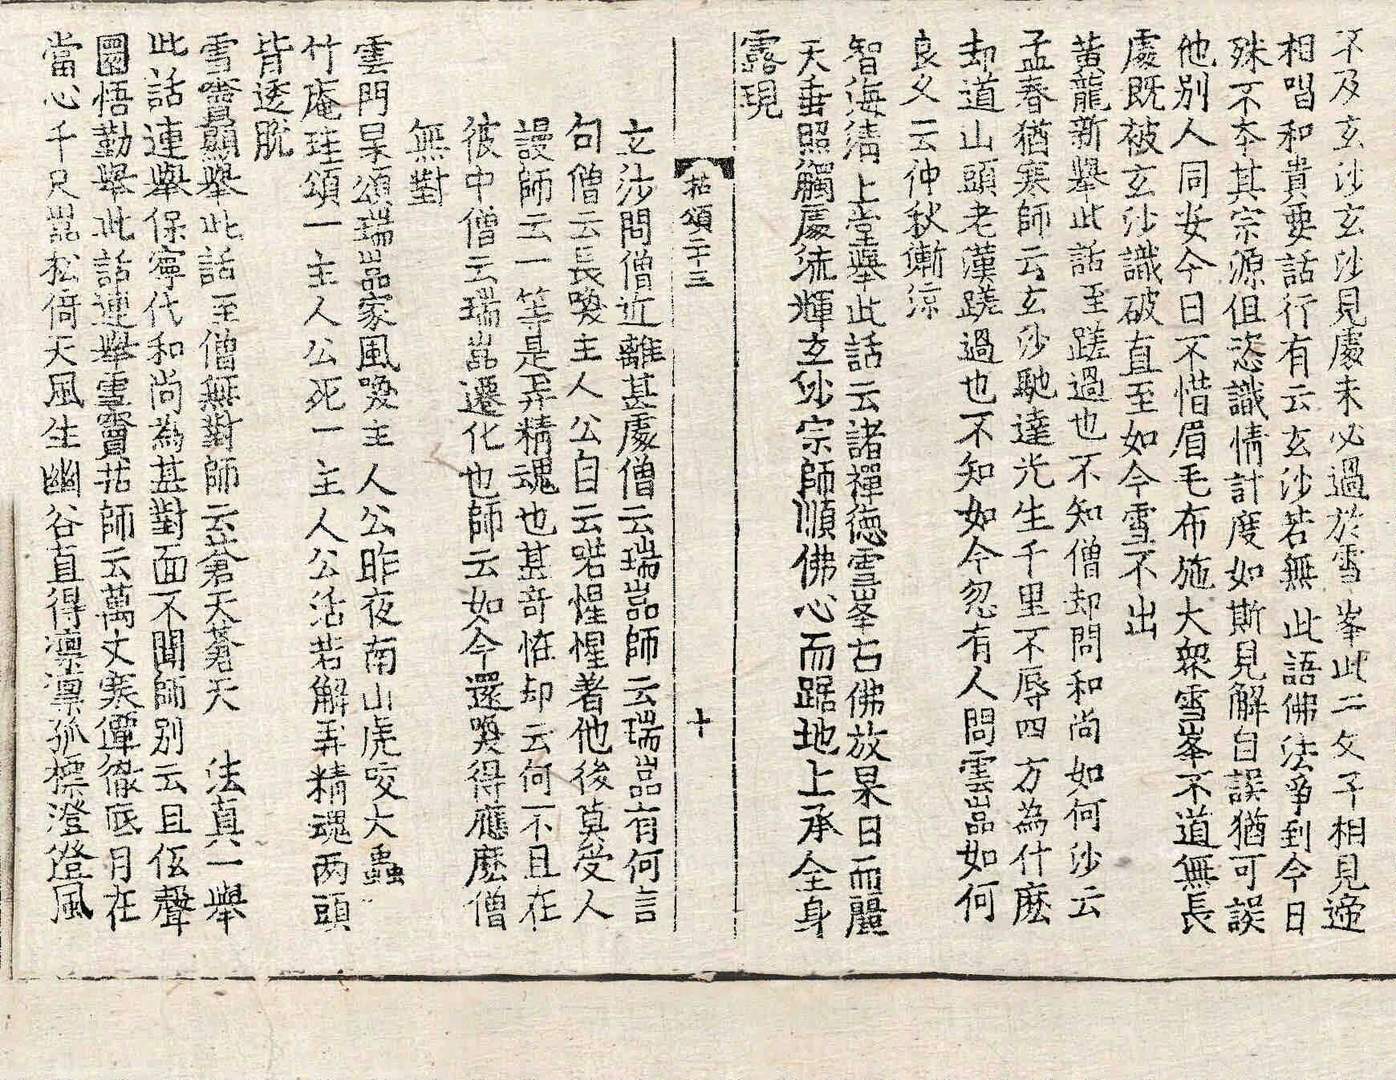 不及玄沙玄沙見處未必過於雪峯此二父子相見啼
相唱和貴要話行有云玄沙若無此語佛法爭到今日
殊不夲其宗源但恣識情計度如斯見解自誤猶可誤
他別人同安今日不惜眉毛布施大衆雪峯不道無長
處旣被玄沙識破直至如今雪不出
黃龍新舉此話至蹉過也不知僧却問和尚如何沙云
孟春猶寒師云玄沙馳達光生千里不辱四方為什麽
却道山頭老漢蹉過也不知如今忽有人問雲嵓如何
良久云仲秋漸凉
智海淸上堂舉此話云諸禪德雪峯古佛放杲日而麗
天垂照觸處流輝玄沙宗師順佛心而踞地上承全身
露現
拈頌二十三
十
玄沙問僧近離甚處僧云瑞嵓師云瑞嵓有何言
句僧云長喚主人公自云喏惺惺着他後莫受人
謾師云一等是弄精魂也甚奇恠却云何不且在
彼中僧云瑞嵓遷化也師云如今還喚得應麽僧
無對
雲門杲頌瑞嵓家風喚主人公昨夜南山虎咬大蟲
竹庵珪頌一主人公死一主人公活若解弄精魂两頭
皆透脫
雪竇顯舉此話至僧無對師云蒼天蒼天 法真一舉
此話連舉保寧代和尚為甚對面不聞師別云且伭聲
圜悟勤舉此話連舉雪竇拈師云萬丈寒潭徹底月在
當心千尺嵓松倚天風生幽谷直得凛凛孤標澄澄風